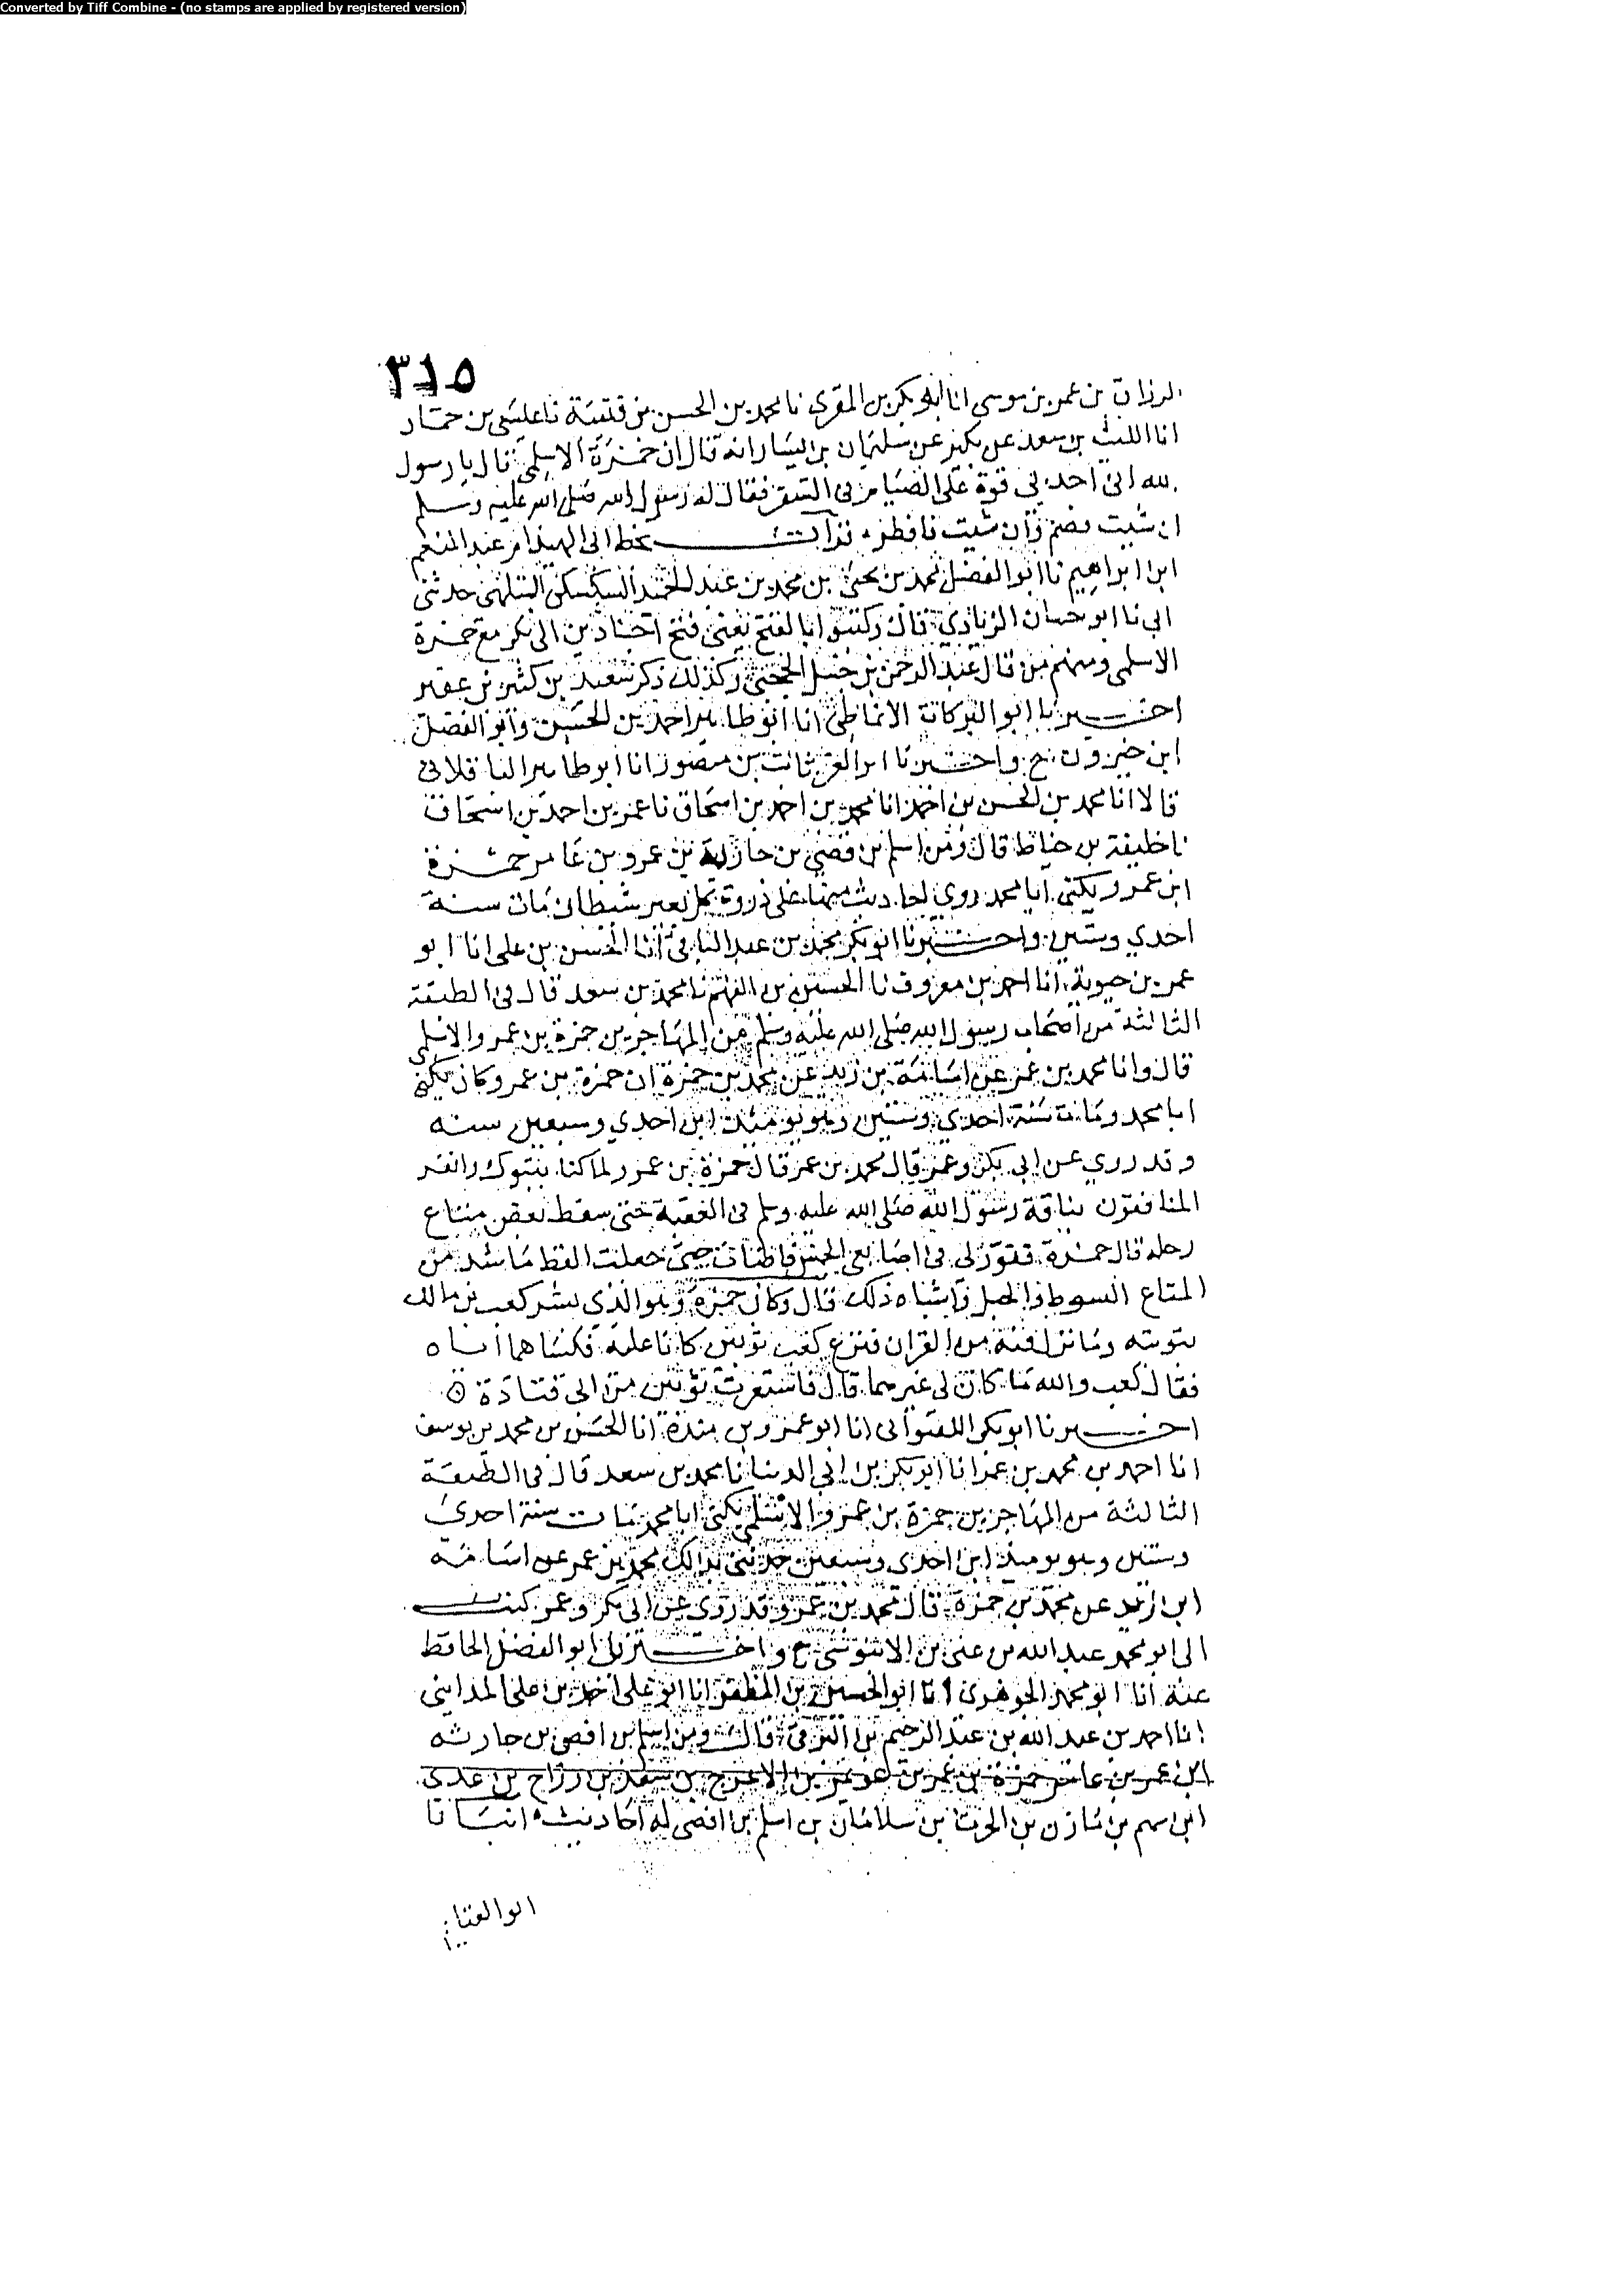 Converted by Tiff Combine - (no stamps are applied by registered version)
٣١٥
الرزاق بن عمر بن موسى انا ابو بكر بن المقرى نا محمد بن الحسن بن قتيبة نا عيسى بن حماد
انا الليث بن سعد عن بكير عن سليمان بن اليسار انه قال ان حمزة الاسلمى قال يا رسول
الله انى اجد بى قوة على الصيام فى السفر فقال له رسول الله صلى الله عليه وسلم
ان شيت فصم وان شيت فافطر قرات بخط ابى الهيذام عبد المنعم
ابن ابراهيم نا ابو الفضل محمد بن يحيى بن محمد بن عبد الحميد السكسكى البتلهى حدثنى
ابى نا ابو حسان الزيادى قال وكتبوا بالفتح يعنى فتح اجنادين الى ابى بكر مع حمزة
الاسلمى ومنهم من قال عبد الرحمن بن حنبل الجمحى وكذلك ذكر سعيد بن كثير بن عفير
اخبرنا ابو البركات الانماطى انا ابو طاهر احمد بن الحسن وابو الفضل
ابن خيرون ح واخبرنا ابو العز ثابت بن منصور انا ابو طاهر الباقلانى
قالا انا محمد بن الحسن بن احمد انا محمد بن احمد بن اسحاق نا عمر بن احمد بن اسحاق
نا خليفة بن خياط قال ومن اسلم بن افصى بن حارثة بن عمرو بن عامر حمزة
ابن عمرو يكنى ابا محمد روى احاديث منها على ذروة كل بعير شيطان مات سنة
احدى وستين واخبرنا ابو بكر محمد بن عبد الباقى انا الحسن بن على انا ابو
عمر بن حيوية انا احمد بن معروف نا الحسين بن الفهم نا محمد بن سعد قال فى الطبقة
الثالثة من اصحاب رسول الله صلى الله عليه وسلم من المهاجرين حمزة بن عمرو الاسلمى
قال وانا محمد بن عمر عن اسامة بن زيد عن محمد بن حمزة ان حمزة بن عمرو كان يكنى
ابا محمد ومات سنة احدى وستين وهو يوميذ ابن احدى وسبعين سنه
وقد روى عن ابى بكر وعمر قال محمد بن عمر قال حمزة بن عمرو لما كنا بتبوك وانفر
المنافقون بناقة رسول الله صلى الله عليه وسلم فى العقبة حتى سقط بعض متاع
رحله قال حمزة فنور لى فى اصابعى الخمس فاضات حتى جعلت القط ما شد من
المتاع السوط والحبل واشباه ذلك قال وكان حمزة وهو الذى بشر كعب بن مالك
بتوبته وما نزل فيه من القران فنزع كعب ثوبين كانا عليه فكساهما اياه
فقال كعب والله ما كان لى غيرهما قال فاستعرت ثوبين من ابى قتادة
اخبرنا ابو بكر اللفتوانى انا ابو عمرو بن منده انا الحسن بن محمد بن يوسف
انا احمد بن محمد بن عمر انا ابو بكر بن ابى الدنيا نا محمد بن سعد قال فى الطبقة
الثالثة من المهاجرين حمزة بن عمرو الاسلمى يكنى ابا محمد مات سنة احدى
وستين وهو يوميذ ابن احدى وسبعين حدثنى بذالك محمد بن عمر عن اسامة
ابن زيد عن محمد بن حمزة قال محمد بن عمر وقد روى عن ابى بكر وعمر كتب
الى ابو محمد عبد الله بن على بن الابنوسى ح واخبرنى ابو الفضل الحافظ
عنه انا ابو محمد الجوهرى انا ابو الحسين بن المظفر انا ابو على احمد بن على المداينى
انا احمد بن عبد الله بن عبد الرحيم بن البرقى قال ومن اسلم بن افصى بن حارثه
ابن عمر بن عامر حمزة بن عمر بن عويمر بن الاعرج بن سعد بن رزاح بن عدى
ابن سهم بن مازن بن الحرث بن سلامان بن اسلم بن افصى له احاديث انبانا
ابو الغنا